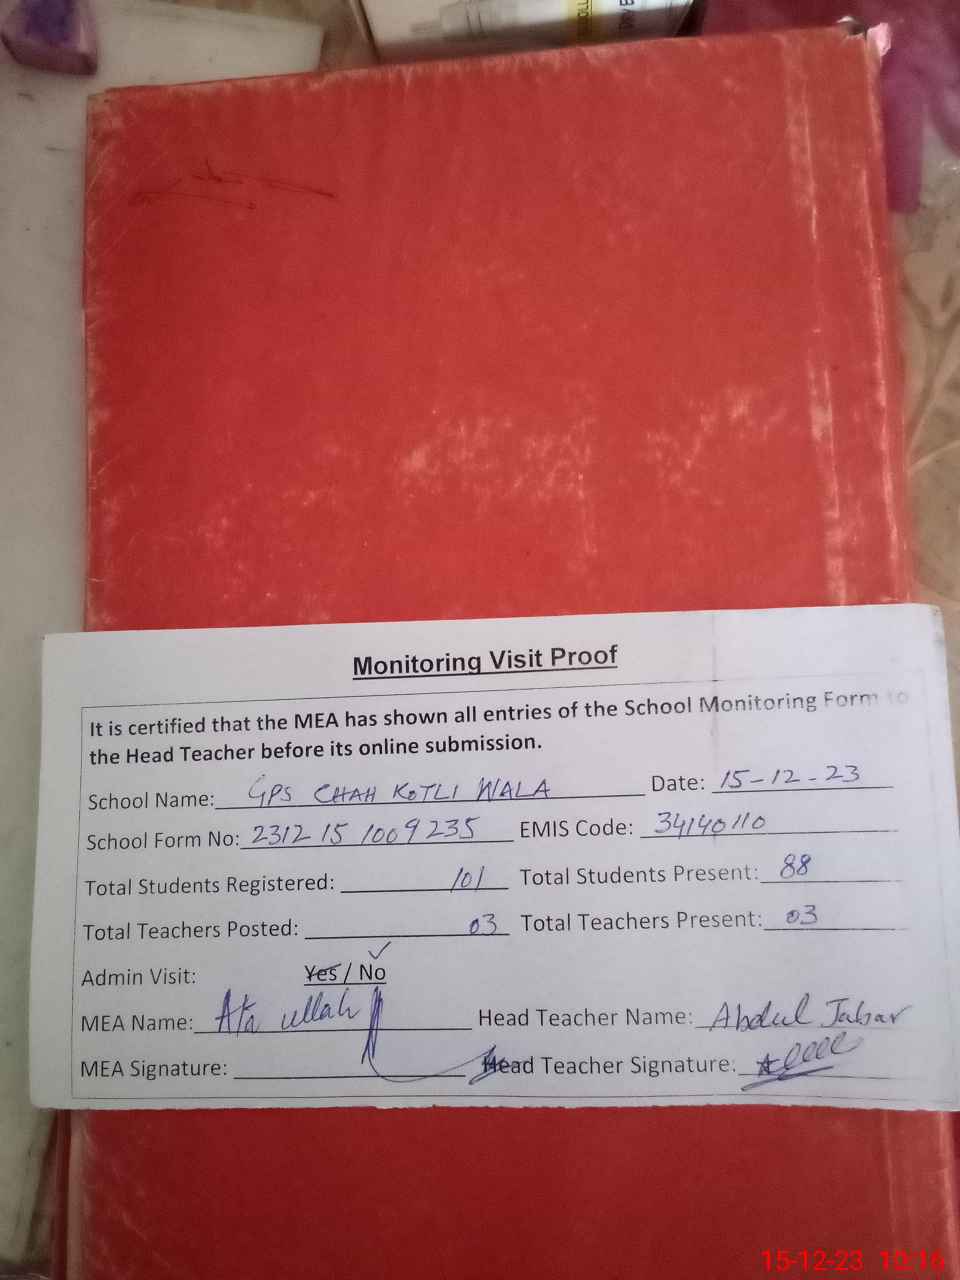 Monitoring Visit Proof
It is certified that the MEA has shown all entries of the School Monitoring Form to
the Head Teacher before its online submission.
School Name: GPS CHAH KOTLI WALA Date: 15-12-23
School Form No: 2312 15 1009235 EMIS Code: 34140110
Total Students Registered: 101 Total Students Present: 88
Total Teachers Posted: 03 Total Teachers Present: 03
Admin Visit: Yes / No
MEA Name: Ata ullah Head Teacher Name: Abdul Jabar
MEA Signature: Head Teacher Signature:
15-12-23 10:16